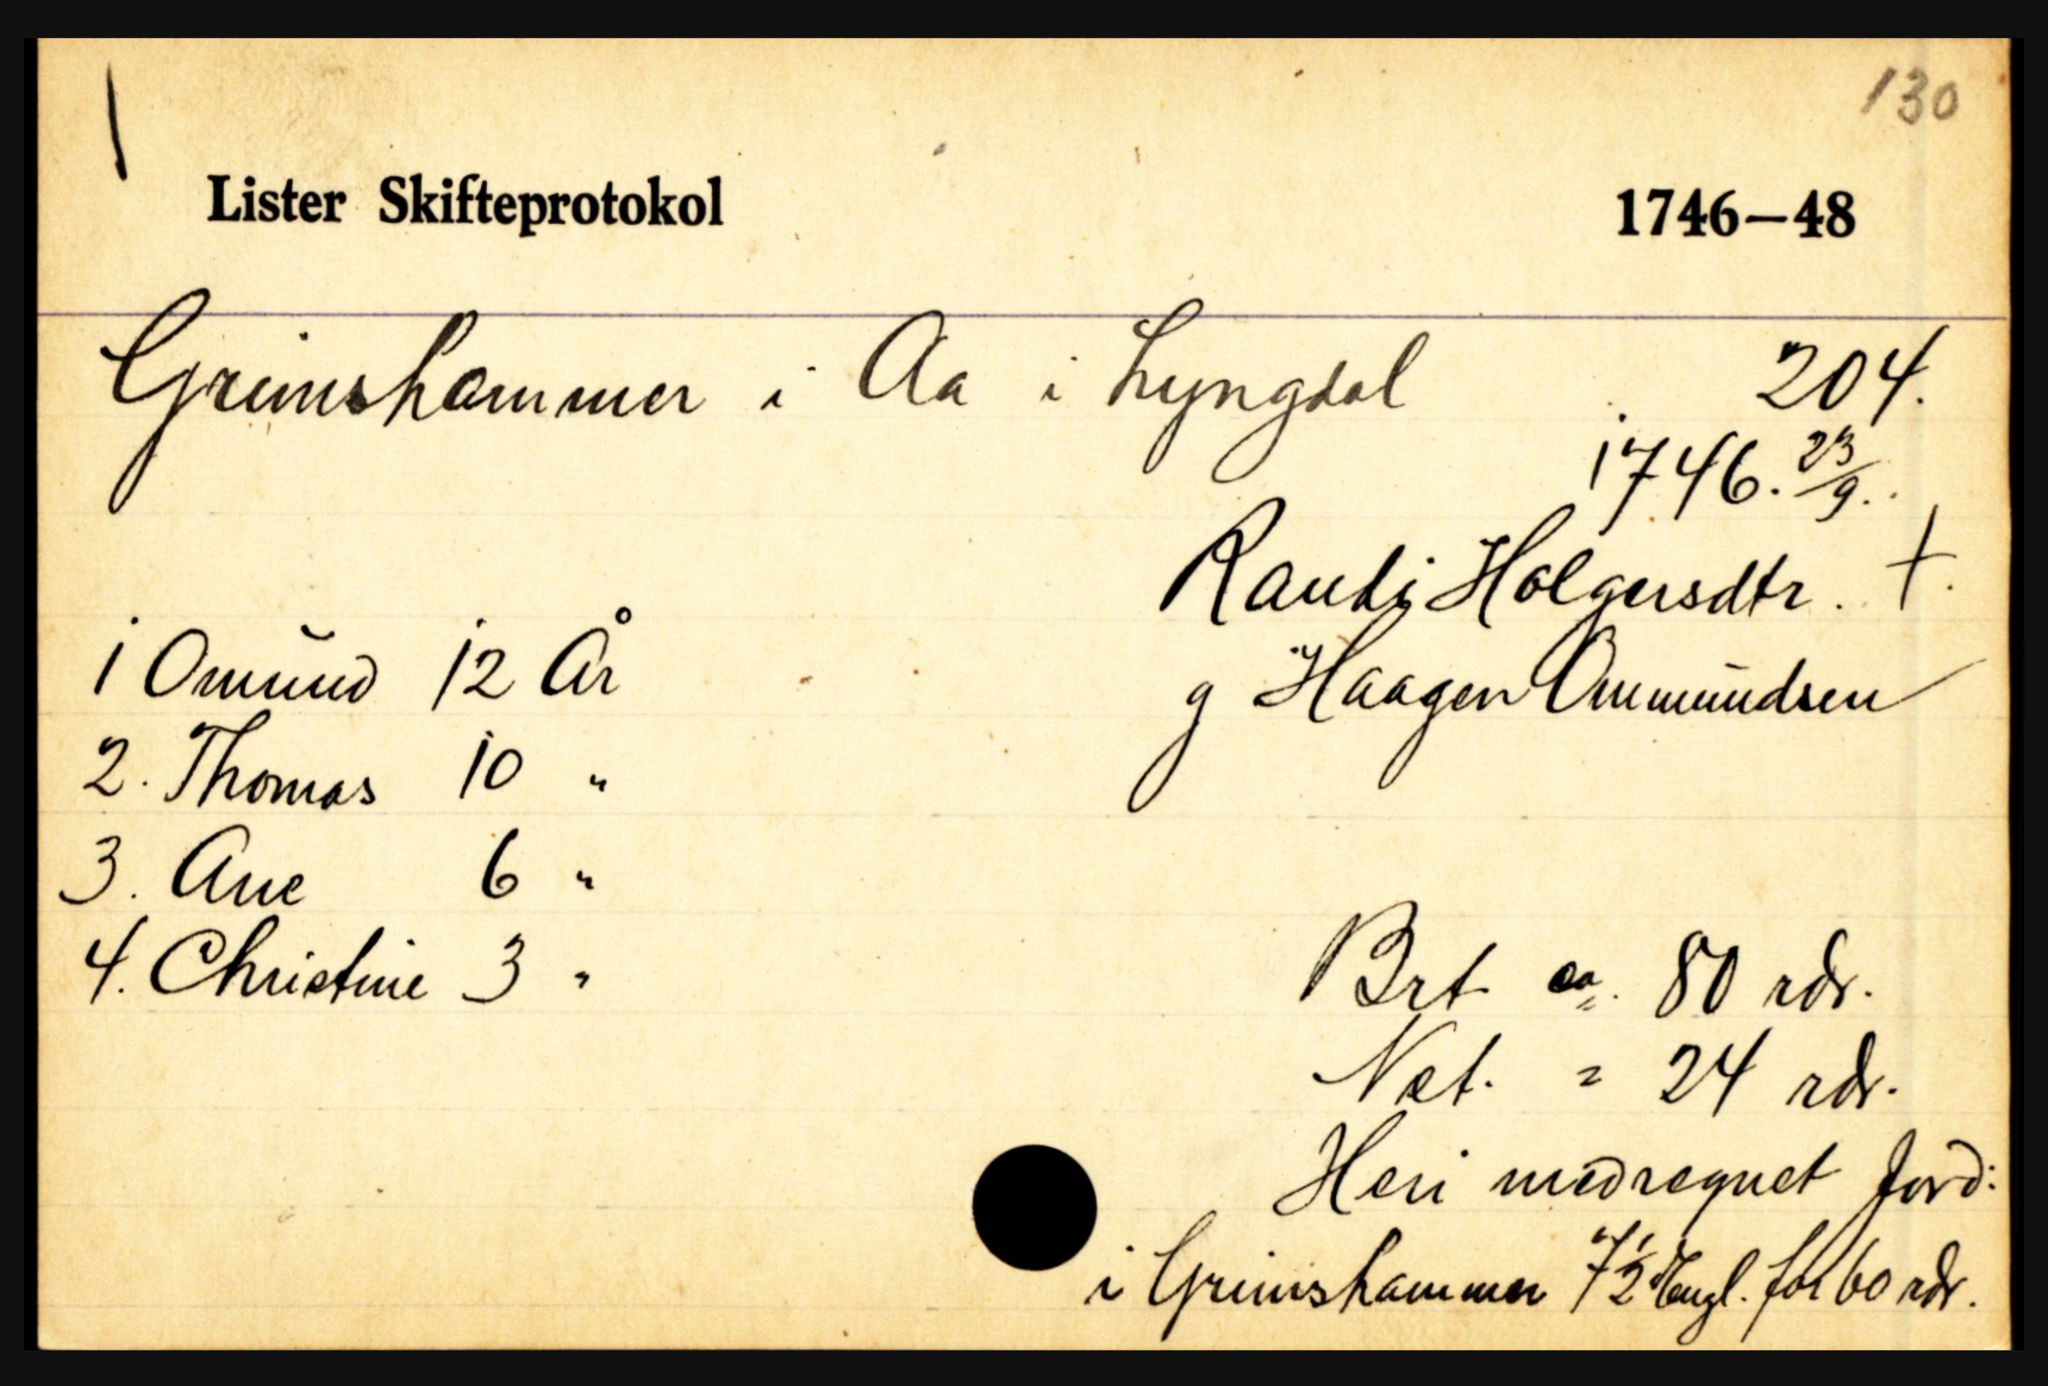 130
Lister Skifteprotokol 1746—48
Grimshammer i Aa i Lyngdal 204.
1746. 23/9.
Randi Holgersdtr. †.
1 Omund 12 År g Haagen Ommundsen
2. Thomas 10 "
3. Ane 6 "
4. Christine 3 "
Brt ca. 80 rdr.
Net. = 24 rdr.
Heri medregnet Jord:
i Grimshammer 7 1/2 Engl. for 60 rdr.